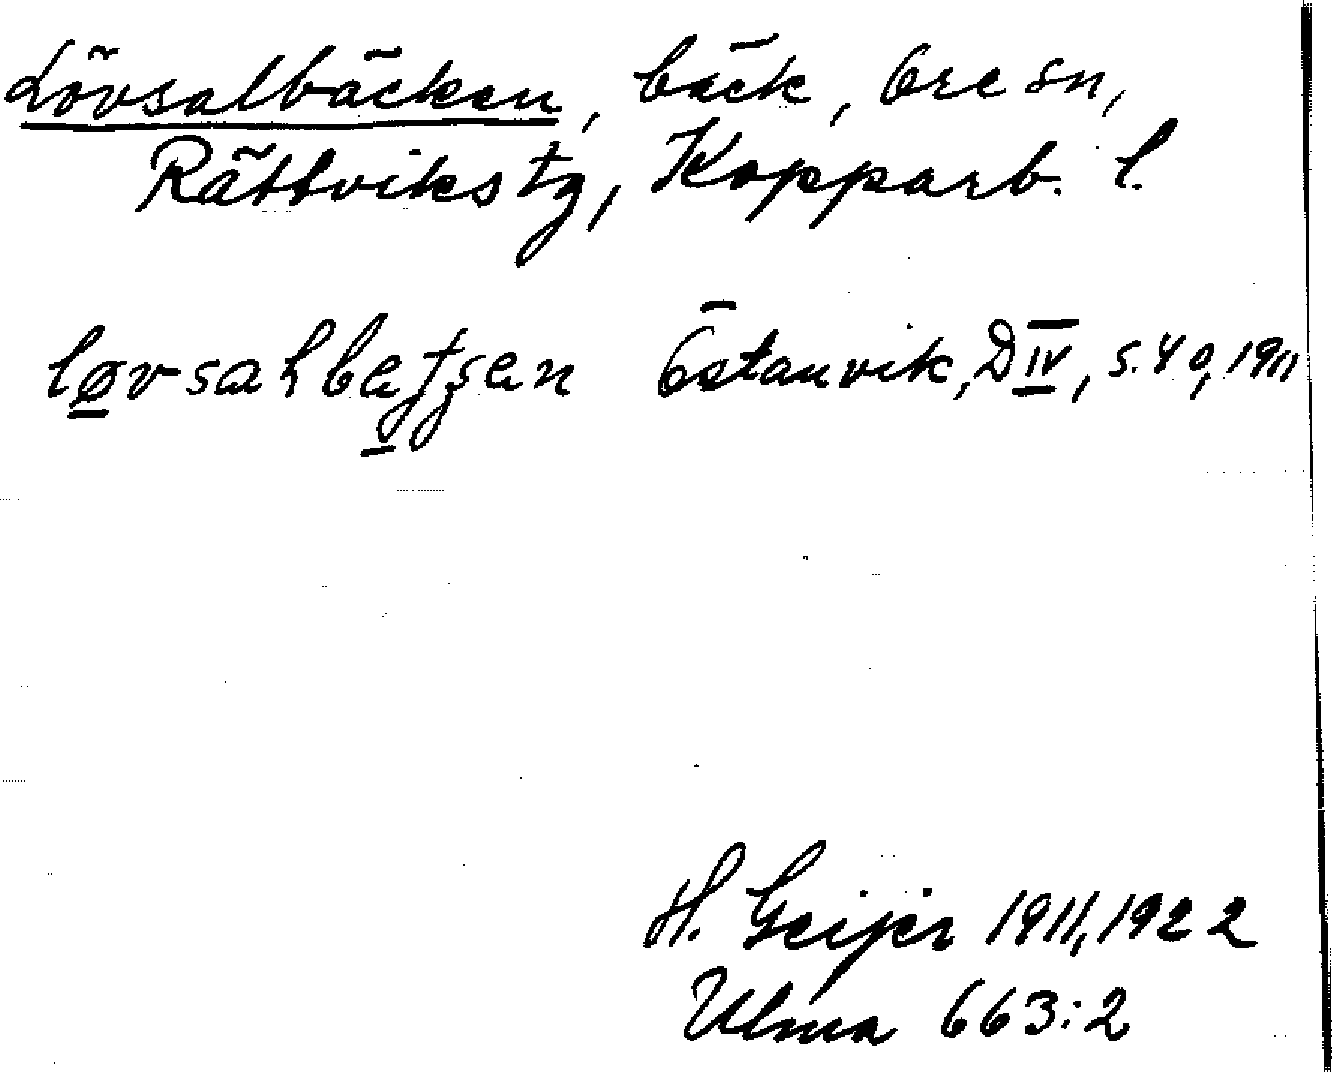 Lövsalbäcken, bäck, Ore sn,
Rättviks tg, Kopparb. l.
Östanvik, D IV, s. 40, 1911
H. Geijer 1911, 1922
Ulma 663:2